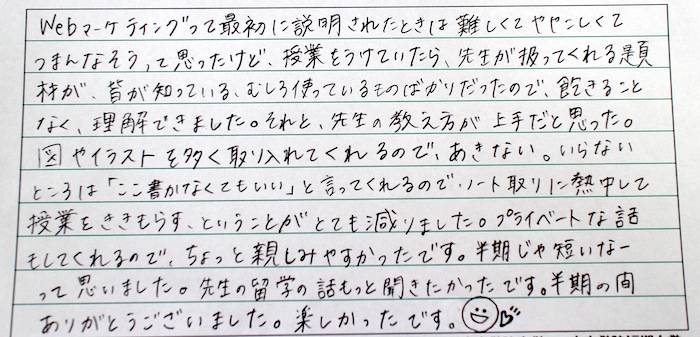 Webマーケティングって最初に説明されたときは難しくてややこしくて
つまんなそう､って思ったけど、授業をうけていたら、先生が扱ってくれる題
材が、皆が知っている、むしろ使っているものばかりだったので、飽きること
なく、理解できました。それと、先生の教え方が上手だと思った。
図やイラストを多く取り入れてくれるので、あきない。いらない
ところは「ここ書かなくてもいい」と言ってくれるので､ノート取りに熱中して
授業をききもらす、ということがとても減りました。プライベートな話
もしてくれるので、ちょっと親しみやすかったです。半期じゃ短いなー
って思いました。先生の留学の話もっと聞きたかったです。半期の間
ありがとうございました。楽しかったです。